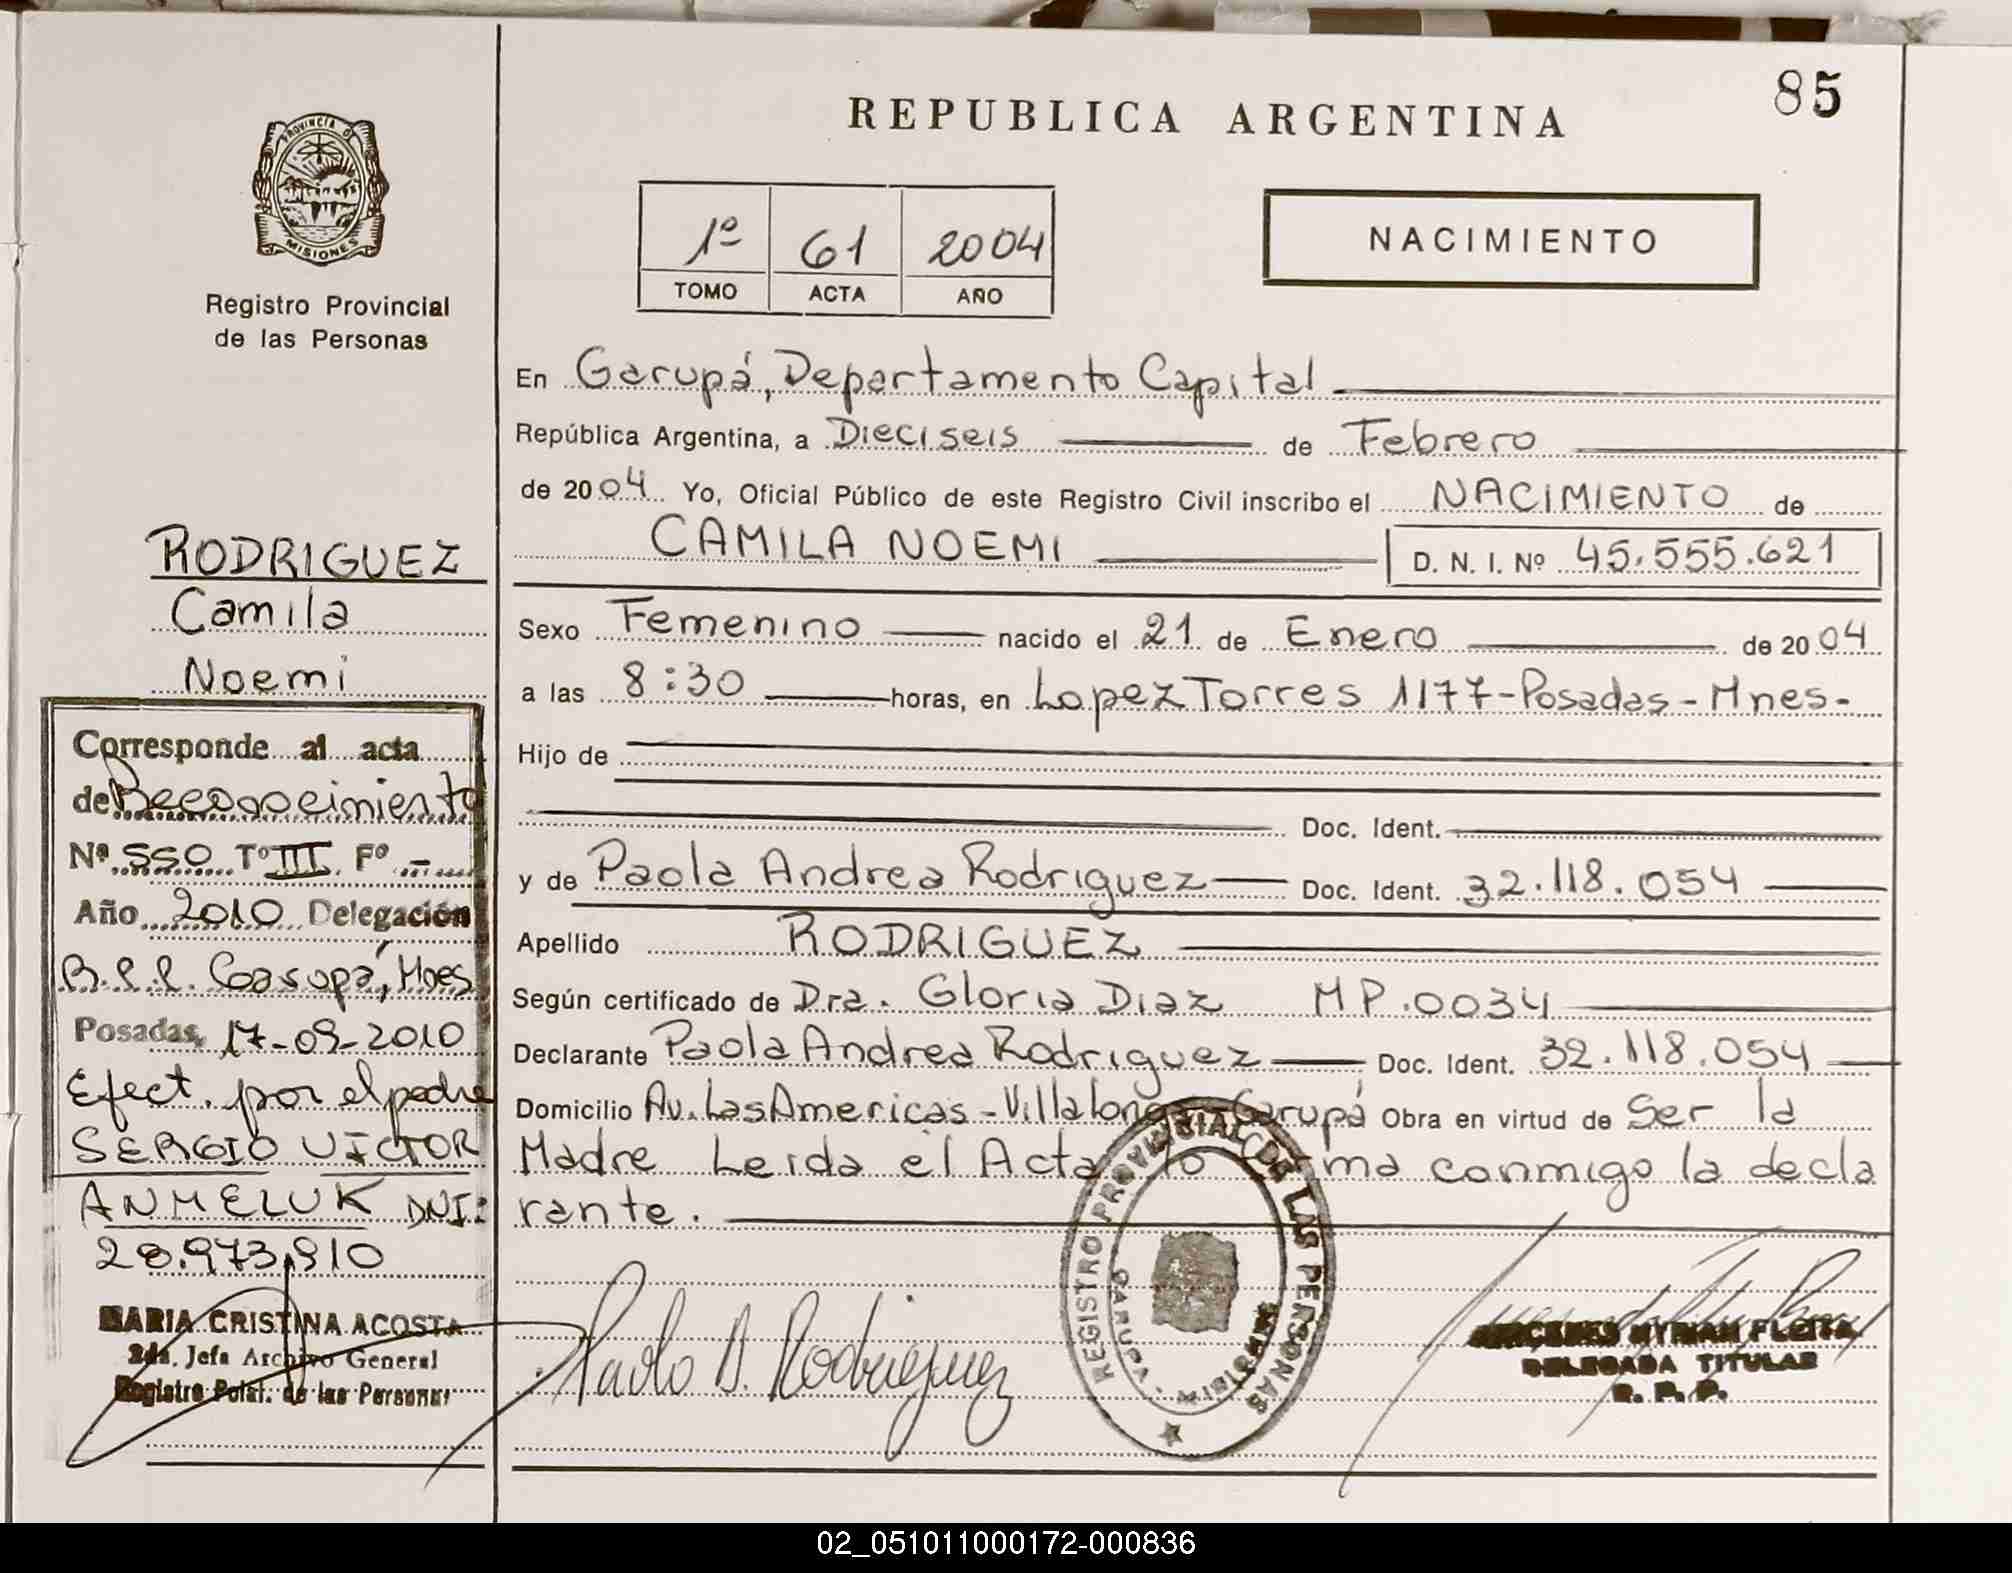 85
REPUBLICA ARGENTINA
PROVINCIA DE
MISIONES
Registro Provincial
de las Personas
1º 61 2004
TOMO ACTA AÑO
NACIMIENTO
En Garupá, Departamento Capital
República Argentina, a Dieciseis de Febrero
de 2004 Yo, Oficial Público de este Registro Civil inscribo el NACIMIENTO de
CAMILA NOEMI D. N. I. Nº 45.555.621
Sexo Femenino nacido el 21 de Enero de 2004
a las 8:30 horas, en Lopez Torres 1177-Posadas-Mnes-
Hijo de
Doc. Ident.
y de Paola Andrea Rodriguez Doc. Ident. 32.118.054
Apellido RODRIGUEZ
Según certificado de Dra. Gloria Diaz MP.0034
Declarante Paola Andrea Rodriguez Doc. Ident. 32.118.054
Domicilio Av. Las Americas-Villalonga-Garupá Obra en virtud de Ser la
Madre Leida el Acta la firma conmigo la decla
rante.
RODRIGUEZ
Camila
Noemi
Corresponde al acta
de Reconocimiento
Nº 550 Tº III Fº -
Año 2010 Delegación
R.P.P. Garupá, Mnes
Posadas, 17-09-2010
Efect. por el padre
SERGIO VICTOR
ANMELUK DNI:
28.973.910
MARIA CRISTINA ACOSTA
2da. Jefa Archivo General
Registro Pcial. de las Personas
Paola A. Rodriguez
REGISTRO PROVINCIAL DE LAS PERSONAS
GARUPA - MISIONES
MYRIAM FLEITA
DELEGADA TITULAR
R. P. P.
02_051011000172-000836